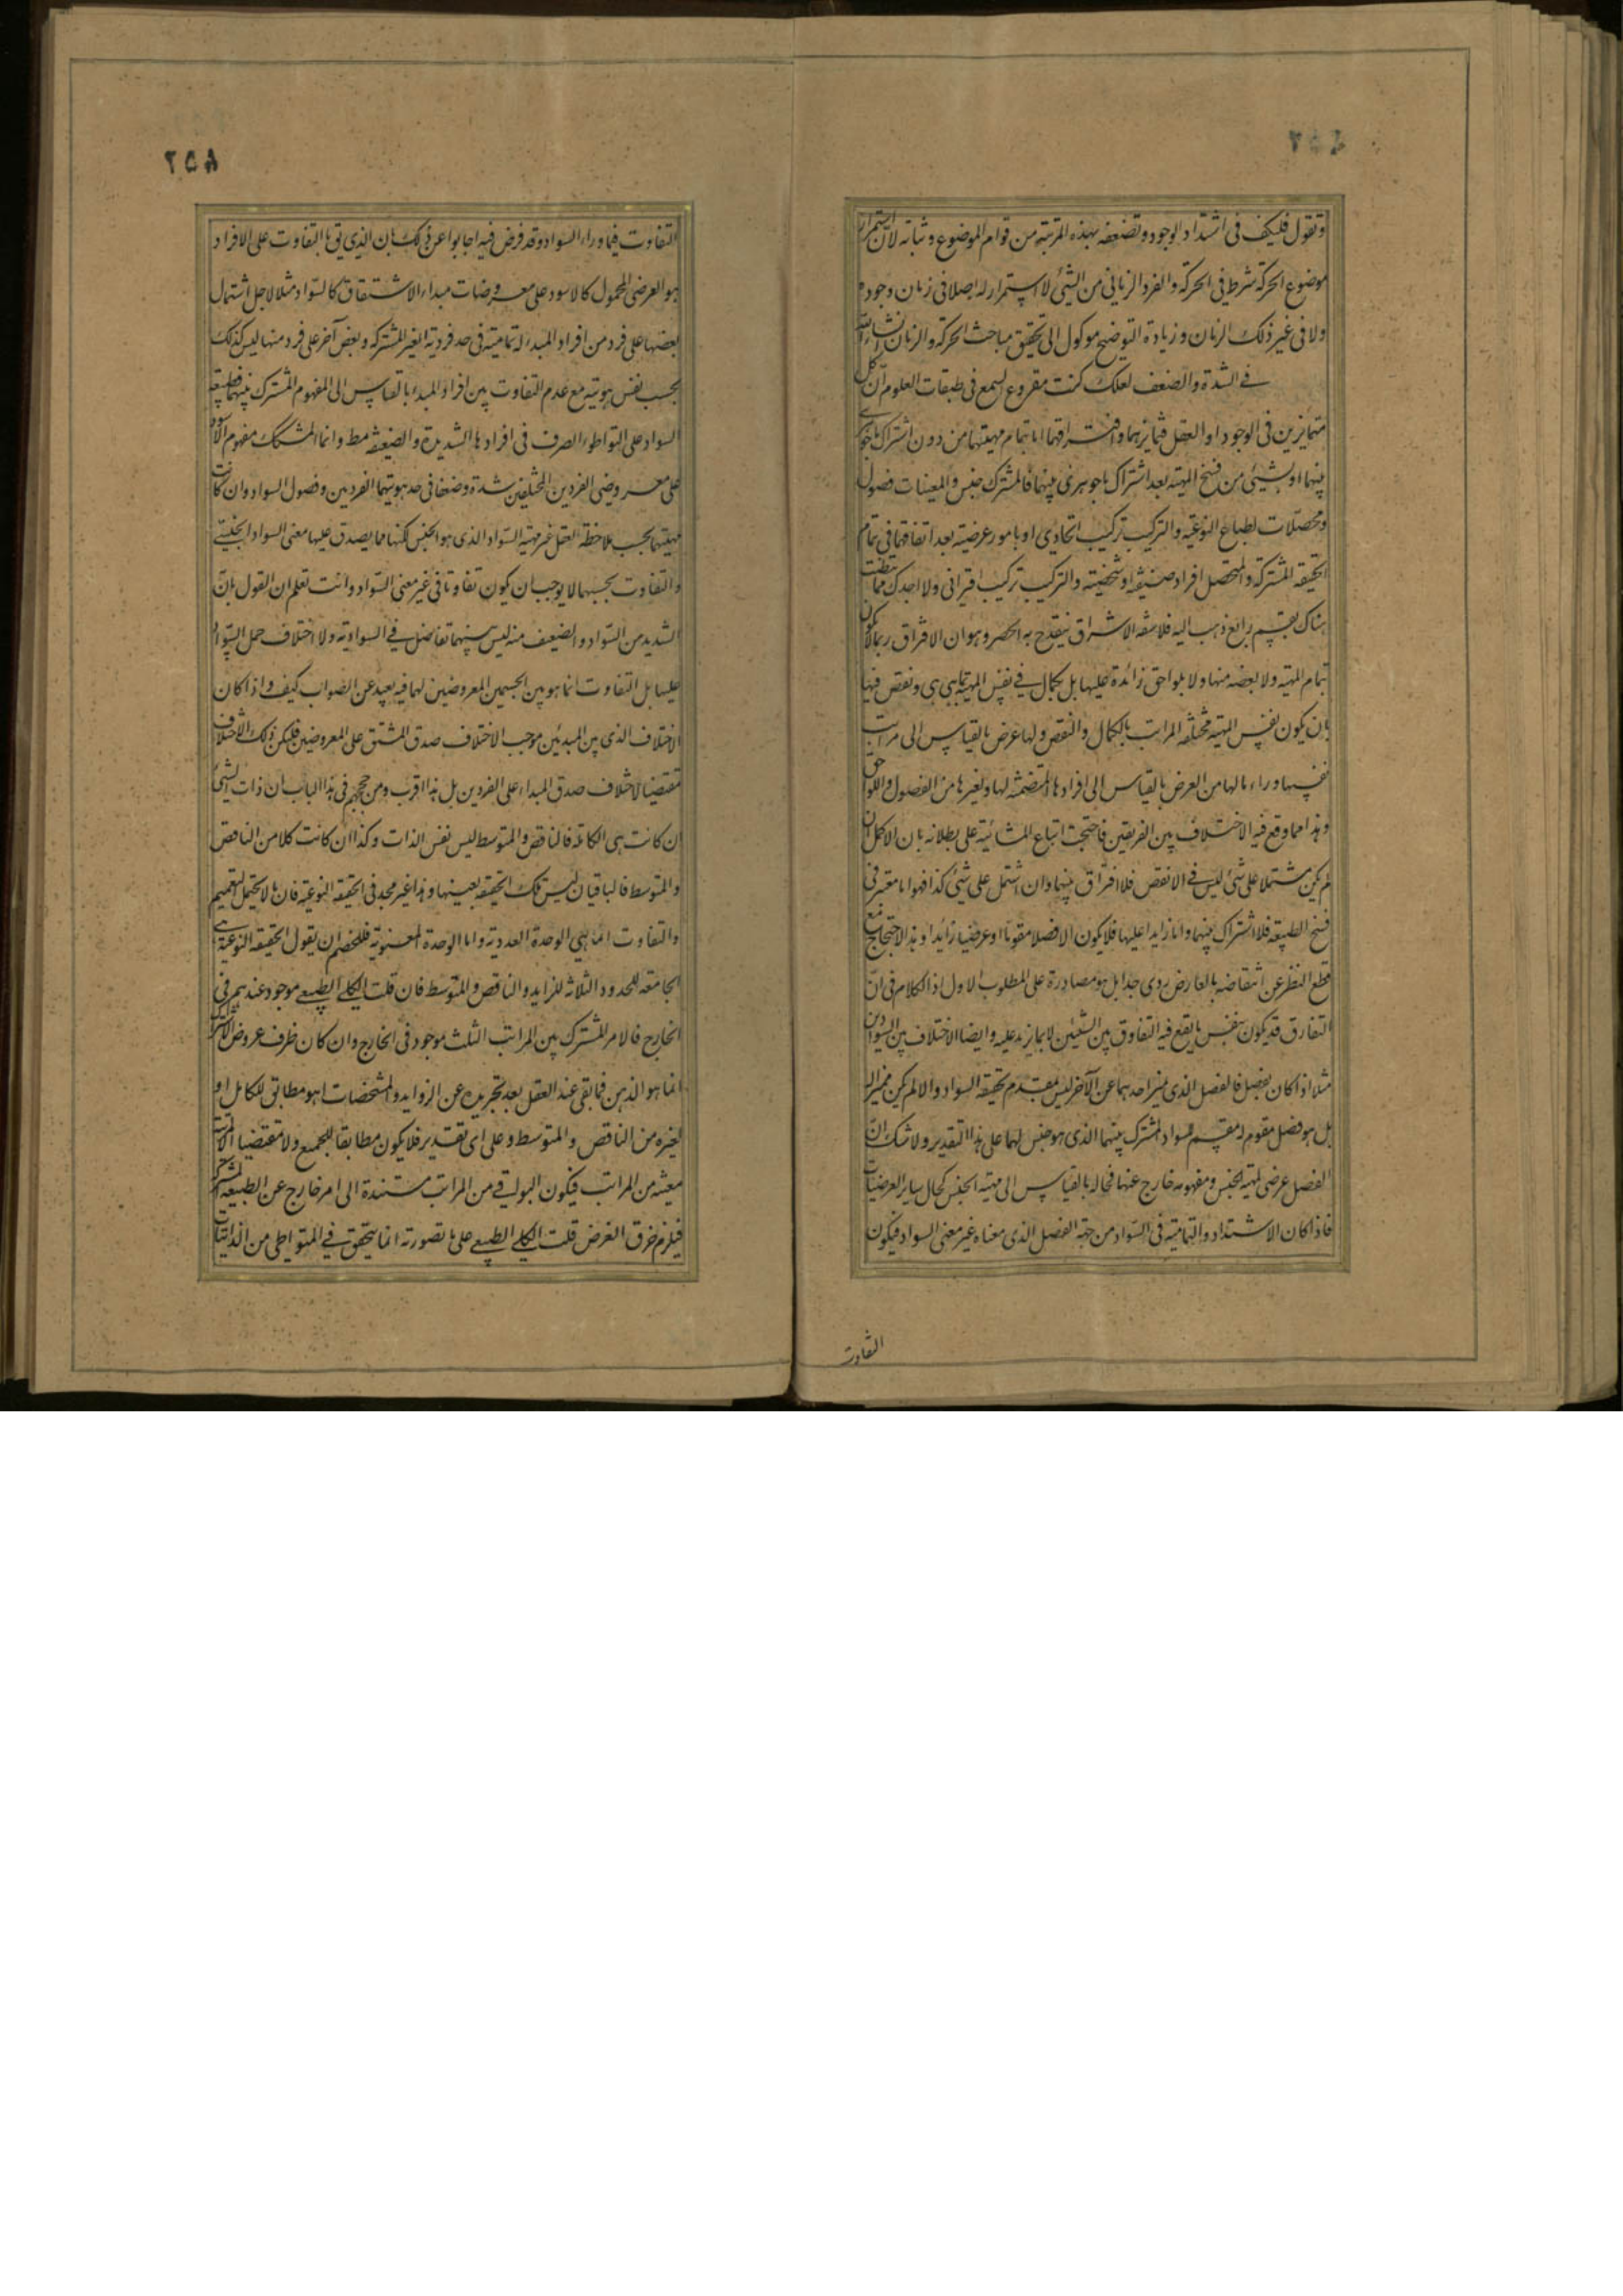 ونقول فليكف في اشتداد الوجود وتضعفه بهذه المرتبة من قوام الموضوع وثباته لان استمرار
موضوع الحركة شرط في الحركة والفرد الزماني من الشئ لا استمرار له اصلا في زمان وجوده
ولا في غير ذلك الزمان وزيادة التوضيح موكول الى تحقيق مباحث الحركة والزمان انشاء الله
في الشدة والضعف لعلك كنت مقروع السمع في طبقات العلوم ان كل
متمايزين في الوجود او العقل فتمايزهما وافتراقهما اما بتمام مهيتهما من دون اشتراك ما جوهري
بينهما او بشئ من سنخ المهية بعد اشتراك ما جوهري بينهما فالمشترك جنس والمعينات فصول
ومحصلات لطبايع النوعية والتركيب تركيب اتحادي او بامور عرضية بعد اتفاقهما في تمام
الحقيقة المشتركة والمتحصل افراد صنفية او شخصية والتركيب تركيب اقتراني ولا اجدك ممن تفطنت
هناك بقسم رابع ذهب اليه فلاسفة الاشراق ينقدح به الحصر وهو ان الافتراق ربما لا يكون
بتمام المهية ولا ببعض منها ولا بلواحق زائدة عليها بل بكمال في نفس المهية بما هي هي ونقص فيها
بان يكون نفس المهية مختلفة المراتب بالكمال والنقص ولها عرض بالقياس الى مراتب
نفسها وراء ما لها من العرض بالقياس الى افرادها المتضمنة لها ولغيرها من الفصول واللواحق
وهذا مما وقع فيه الاختلاف بين الفريقين فاحتجت اتباع المشائية على بطلانه بان الاكمل ان
لم يكن مشتملا على شئ ليس في الانقص فلا افتراق بينهما وان اشتمل على شئ كذا فهو اما معتبر في
سنخ الطبيعة فلا اشتراك بينهما واما زايد عليها فلا يكون الا فصلا مقوما او عرضيا زائدا وهذا الاحتجاج مع
قطع النظر عن انتقاضه بالعارض ردي جدا بل هو مصادرة على المطلوب الاول اذ الكلام في ان
التفارق قد يكون بنفس ما يقع فيه التفاوق بين الشيئين لا بما يزيد عليه وايضا الاختلاف بين السوادين
مثلا اذا كان بفصل فالفصل الذي يميز احدهما عن الآخر ليس بمقدم لحقيقة السواد والا لم يكن مميزا له
بل هو فصل مقوم له مقسم للسواد المشترك بينهما الذي هو جنس لهما على هذا التقدير ولا شك ان
الفصل عرضي لمهية الجنس ومفهومه خارج عنها فحاله بالقياس الى مهية الجنس كحال ساير العرضيات
فاذا كان الاشتداد والتمامية في السواد من جهة الفصل الذي معناه غير معنى السواد فيكون
التفاوت
٢٥٨
التفاوت فيما وراء السواد وقد فرض فيه اجابوا عن ذلك بان الذي يتي بالتفاوت على الافراد
هو العرضي المحمول كالاسود على معروضات مبداء الاشتقاق كالسواد مثلا لاجل اشتمال
بعضها على فرد من افراد المبداء له تمامية في حد فرديته الغير المشتركة وبعض آخر على فرد منها ليس كذلك
بحسب نفس هويته مع عدم التفاوت بين افراد المبداء بالقياس الى المفهوم المشترك بينهما فطبيعة
السواد على التواطوء الصرف في افرادها الشديدة والضعيفة مط وانما المشكك مفهوم الاسود
على معروضي الفردين المختلفين شدة وضعفا في حد هويتهما الفردين وفصول السواد وان كانت
مهيتهما بحسب ملاحظة العقل غير مهية السواد الذي هو الجنس لكنها مما يصدق عليها معنى السواد الجنسي
والتفاوت بحسبهما لا يوجب ان يكون تفاوتا في غير معنى السواد وانت تعلم ان القول بان
الشديد من السواد والضعيف منه ليس بينهما تفاضل في السوادية ولا اختلاف حمل السواد
عليها بل التفاوت انما هو بين الجسمين المعروضين لهما فيه بعيد عن الصواب كيف واذا كان
الاختلاف الذي بين المبدئين موجب الاختلاف صدق المشتق على المعروضين فليكن ذلك الاختلاف
مقتضيا لاختلاف صدق المبداء على الفردين بل هذا اقرب ومن حججهم في هذا الباب ان ذات الشئ
ان كانت هي الكاملة فالناقص والمتوسط ليس نفس الذات وكذا ان كانت كلا من الناقص
والمتوسط فالباقيان ليس تلك الحقيقة بعينها وهذا غير مجد في الحقيقة النوعية فان ما لا يحتمل التعميم
والتفاوت انما هي الوحدة العددية واما الوحدة المعنوية فللخصم ان يقول الحقيقة النوعية هي
الجامعة للحدود الثلاثة للزايد والناقص والمتوسط فان قلت الكلي الطبيعي موجود عندهم في
الخارج فالامر المشترك بين المراتب الثلث موجود في الخارج وان كان ظرف عروض الاشتراك
انما هو الذهن فما بقي عند العقل بعد تجريده عن الزوايد والمشخصات اهو مطابق للكامل او
لغيره من الناقص والمتوسط وعلى اي تقدير فلا يكون مطابقا للجميع ولا مقتضيا الا لمرتبة
معينة من المراتب فيكون البواقي من المراتب مستندة الى امر خارج عن الطبيعة المشتركة
فيلزم خرق الفرض قلت الكلي الطبيعي على ما تصورته انما يتحقق في المتواطي من الذاتيات